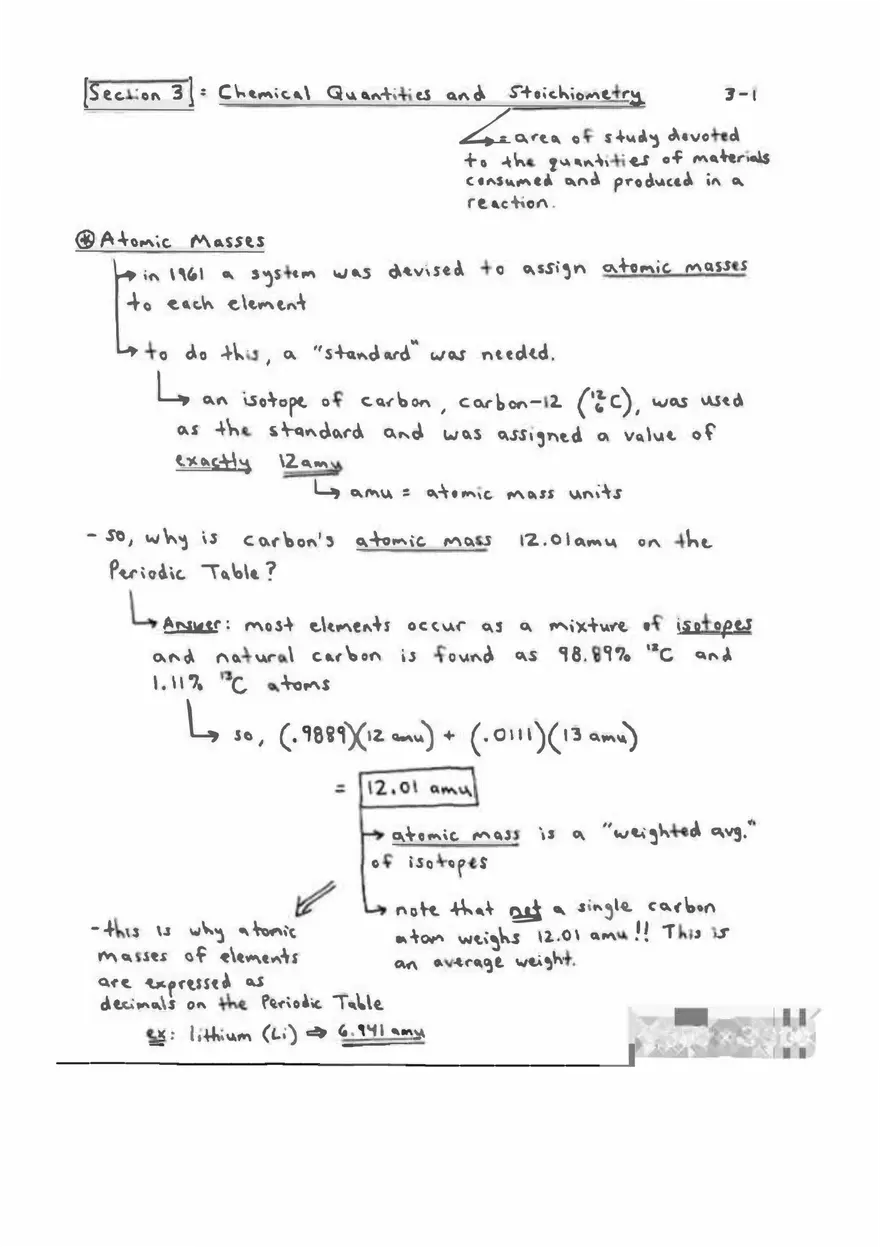 Section 3 : Chemical Quantities and Stoichiometry 3-1
= area of study devoted
to the quantities of materials
consumed and produced in a
reaction.
⊛ Atomic Masses
→ in 1961 a system was devised to assign atomic masses
to each element
→ to do this, a "standard" was needed.
→ an isotope of carbon, carbon-12 (¹²₆C), was used
as the standard and was assigned a value of
exactly 12 amu
→ amu = atomic mass units
- so, why is carbon's atomic mass 12.01 amu on the
Periodic Table?
→ Answer: most elements occur as a mixture of isotopes
and natural carbon is found as 98.89% ¹²C and
1.11% ¹³C atoms
→ so, (.9889)(12 amu) + (.0111)(13 amu)
= 12.01 amu
→ atomic mass is a "weighted avg."
of isotopes
→ note that not a single carbon
atom weighs 12.01 amu!! This is
an average weight.
- this is why atomic
masses of elements
are expressed as
decimals on the Periodic Table
ex: lithium (Li) ⇒ 6.941 amu